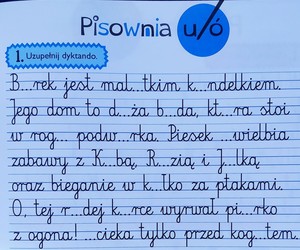 Pisownia u/ó
1. Uzupełnij dyktando.
B...rek jest mal...tkim k...ndelkiem.
Jego dom to d...ża b...da, kt...ra stoi
w rog... podw...rka. Piesek ...wielbia
zabawy z K...bą, R...zią i J...lką
oraz bieganie w k...łko za ptakami.
O, tej r...dej k...rce wyrwał pi...rko
z ogona! ...cieka tylko przed kog...tem.